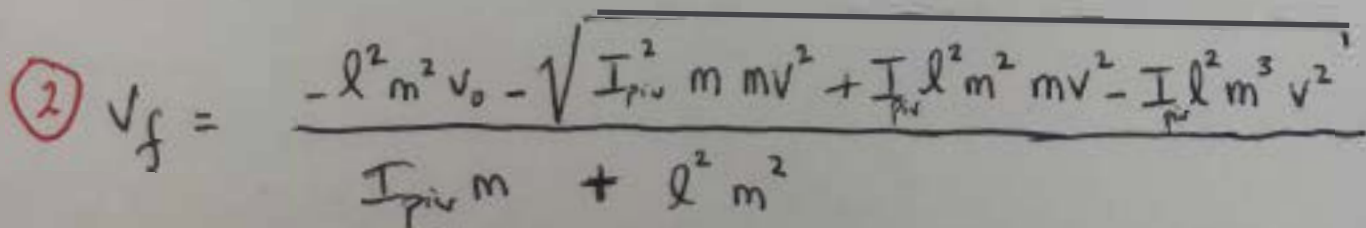 ② V_f = (-l²m²v₀ - √(I_piv² m mv² + I_piv l²m² mv² - I_piv l²m³v²)) / (I_piv m + l²m²)